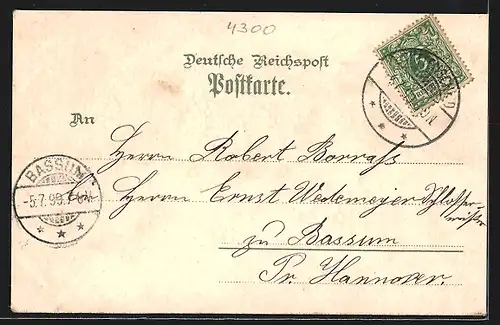 4300
Deutsche Reichspost
Postkarte.
An
Herrn Robert Borrass
Herrn Ernst Wedemeyer Schlosser
meister
zu Bassum
Pr. Hannover.
BASSUM
-5.7.99.